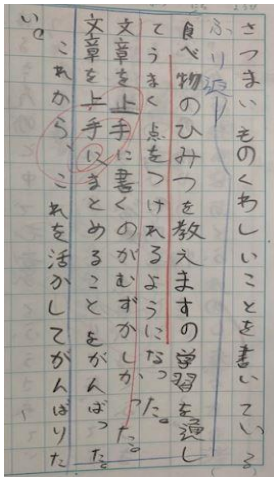 さつまいものくわしいことを書いている
ふり返り
食べ物のひみつを教えますの学習を通し
てうまく点をつけれるようになった。
文章を上手に書くのがむずかしかった。
文章を上手にまとめることをがんばった。
これから、これを活かしてがんばりた
い。